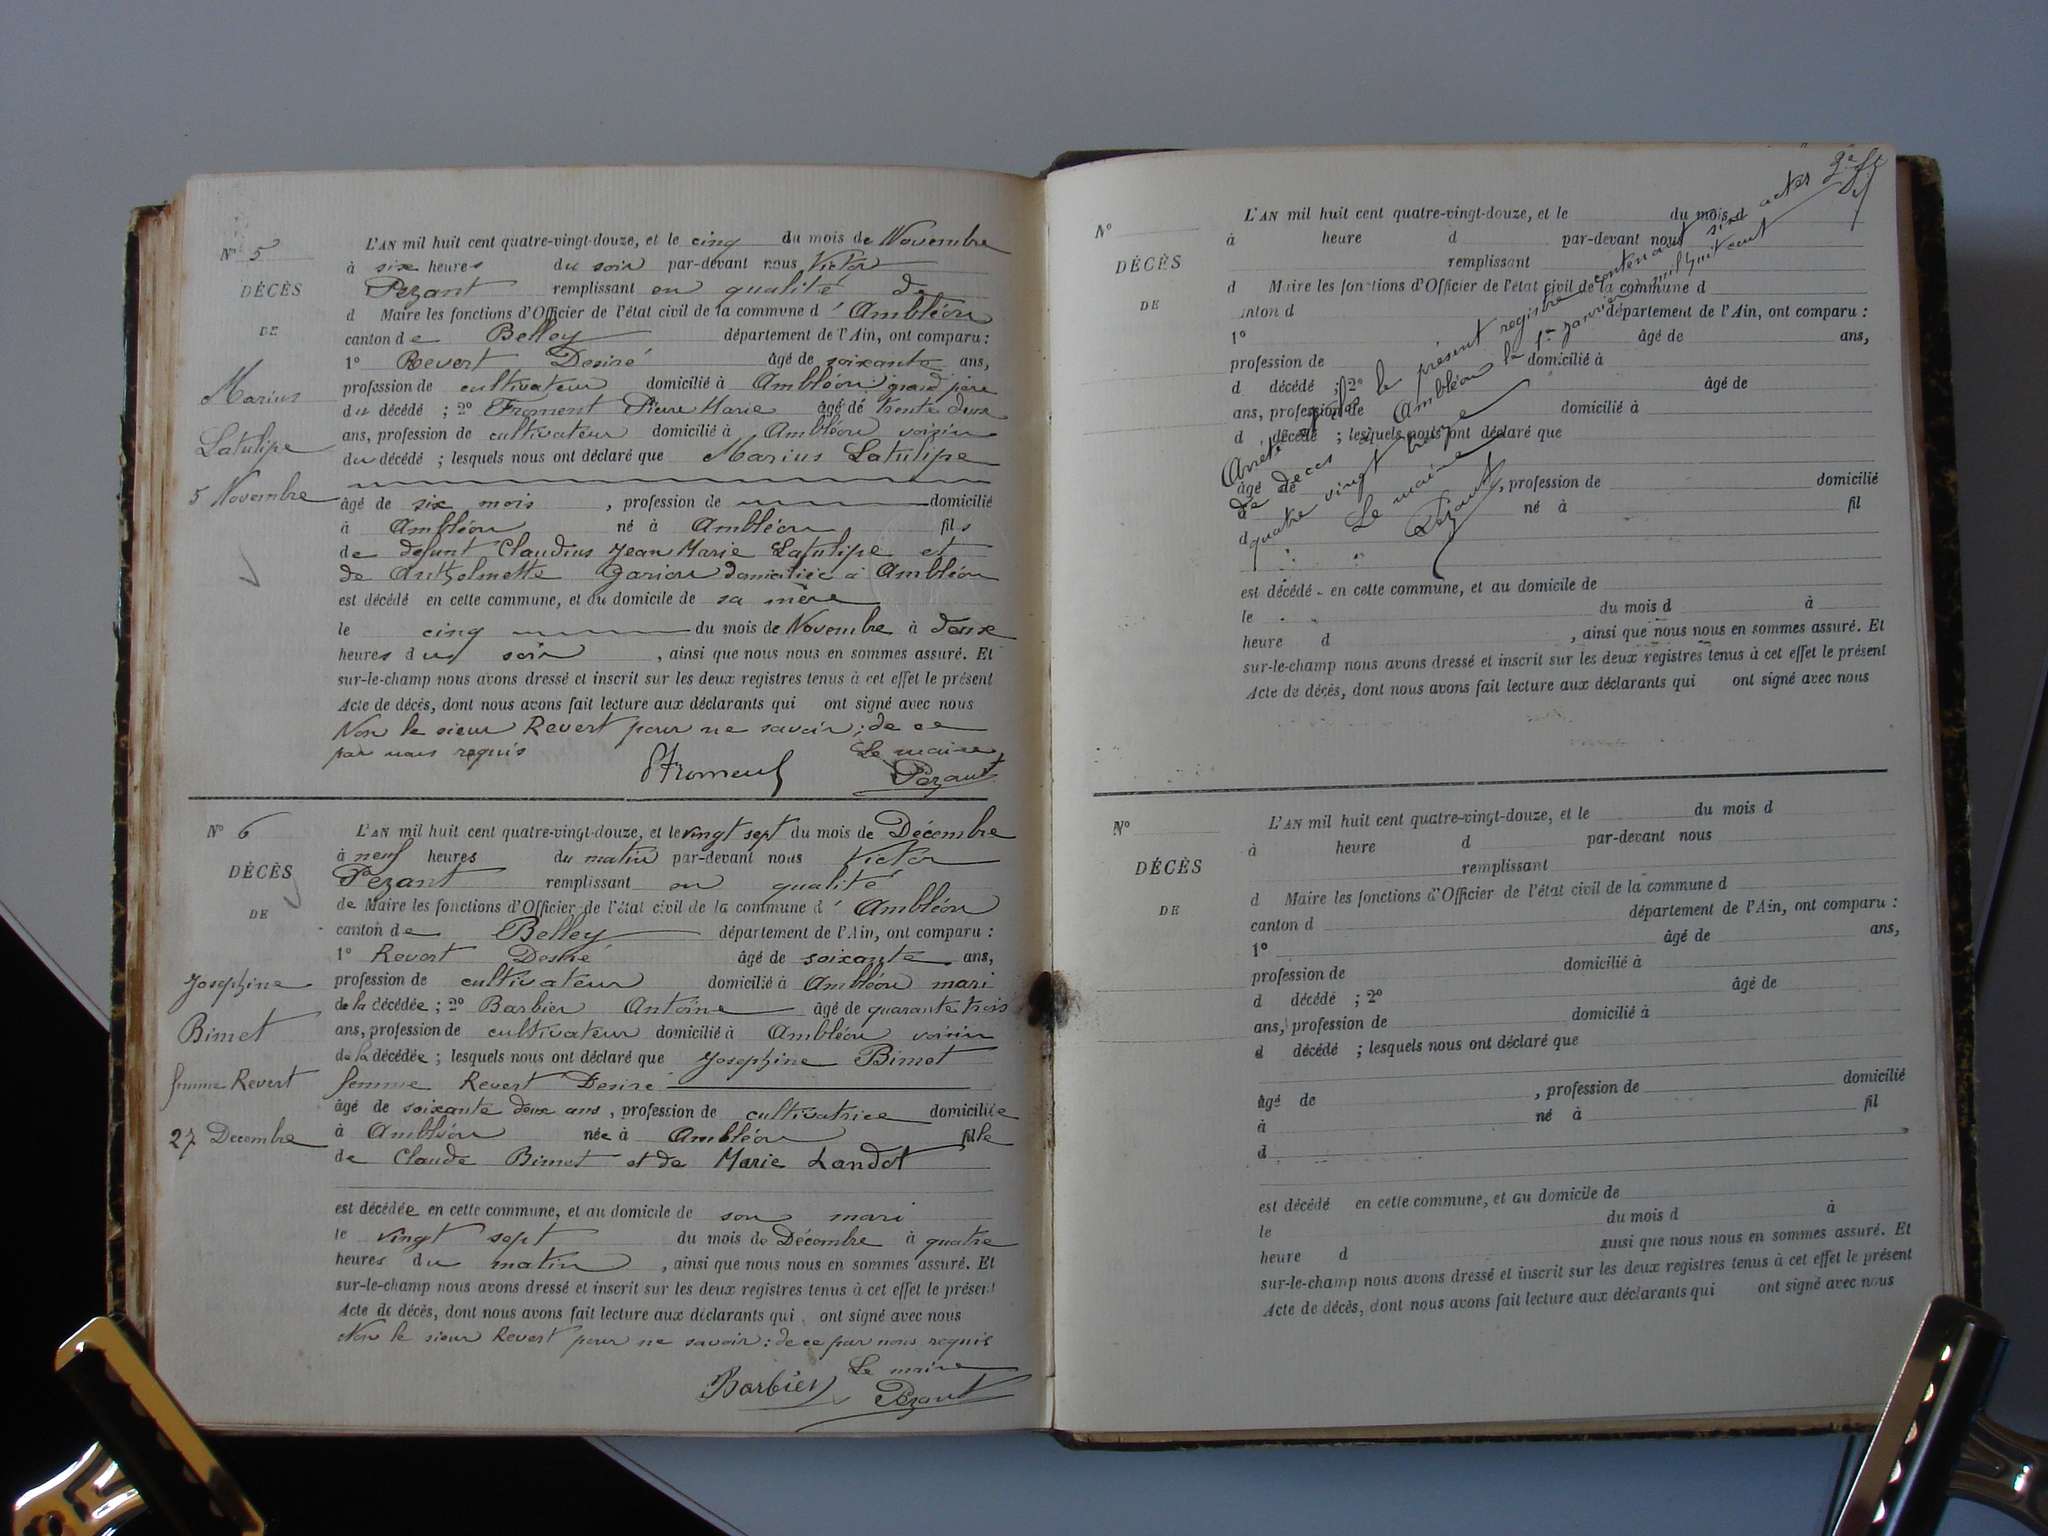 N° 5
DÉCÈS
DE
Marius
Latulipe
5 Novembre
L'AN mil huit cent quatre-vingt-douze, et le cinq du mois de Novembre
à six heures du soir par-devant nous Victor
Pezant remplissant en qualité de
d Maire les fonctions d'Officier de l'état civil de la commune d' Ambléon
canton de Belley département de l'Ain, ont comparu :
1° Revert Desiré âgé de soixante ans,
profession de cultivateur domicilié à Ambléon grand père
du décédé ; 2° Froment Pierre Marie âgé de trente deux
ans, profession de cultivateur domicilié à Ambléon voisin
du décédé ; lesquels nous ont déclaré que Marius Latulipe
âgé de six mois , profession de domicilié
à Ambléon né à Ambléon fils
de défunt Claudius Jean Marie Latulipe et
de Anthelmette Garion domiciliée à Ambléon
est décédé en cette commune, et au domicile de sa mère
le cinq du mois de Novembre à deux
heures du soir , ainsi que nous nous en sommes assuré. Et
sur-le-champ nous avons dressé et inscrit sur les deux registres tenus à cet effet le présent
Acte de décès, dont nous avons fait lecture aux déclarants qui ont signé avec nous
Non le sieur Revert pour ne savoir ; de ce
par nous requis Le maire
Froment Pezant
N° 6
DÉCÈS
DE
Josephine
Bimet
femme Revert
27 Decembre
L'AN mil huit cent quatre-vingt-douze, et le vingt sept du mois de Décembre
à neuf heures du matin par-devant nous Victor
Pezant remplissant en qualité
de Maire les fonctions d'Officier de l'état civil de la commune d' Ambléon
canton de Belley département de l'Ain, ont comparu :
1° Revert Desiré âgé de soixante ans,
profession de cultivateur domicilié à Ambléon mari
de la décédée ; 2° Barbier Antoine âgé de quarante trois
ans, profession de cultivateur domicilié à Ambléon voisin
de la décédée ; lesquels nous ont déclaré que Josephine Bimet
femme Revert Desiré
âgé de soixante deux ans , profession de cultivatrice domiciliée
à Ambléon née à Ambléon fille
de Claude Bimet et de Marie Landot
est décédée en cette commune, et au domicile de son mari
le vingt sept du mois de Décembre à quatre
heures du matin , ainsi que nous nous en sommes assuré. Et
sur-le-champ nous avons dressé et inscrit sur les deux registres tenus à cet effet le présent
Acte de décès, dont nous avons fait lecture aux déclarants qui ont signé avec nous
Non le sieur Revert pour ne savoir : de ce par nous requis
Le maire
Barbier Pezant
N°
DÉCÈS
DE
L'AN mil huit cent quatre-vingt-douze, et le du mois d
à heure d par-devant nous
remplissant
d Maire les fonctions d'Officier de l'état civil de la commune d
canton d département de l'Ain, ont comparu :
1° âgé de ans,
profession de domicilié à
d décédé ; 2° âgé de
ans, profession de domicilié à
d décédé ; lesquels nous ont déclaré que
âgé de , profession de domicilié
à né à fil
d
est décédé en cette commune, et au domicile de
le du mois d à
heure d , ainsi que nous nous en sommes assuré. Et
sur-le-champ nous avons dressé et inscrit sur les deux registres tenus à cet effet le présent
Acte de décès, dont nous avons fait lecture aux déclarants qui ont signé avec nous
Arrêté le présent registre contenant six actes
de deces Ambléon le 1er Janvier mil huit cent
quatre vingt treize
Le maire
Pezant
N°
DÉCÈS
DE
L'AN mil huit cent quatre-vingt-douze, et le du mois d
à heure d par-devant nous
remplissant
d Maire les fonctions d'Officier de l'état civil de la commune d
canton d département de l'Ain, ont comparu :
1° âgé de ans,
profession de domicilié à
d décédé ; 2° âgé de
ans, profession de domicilié à
d décédé ; lesquels nous ont déclaré que
âgé de , profession de domicilié
à né à fil
d
est décédé en cette commune, et au domicile de
le du mois d à
heure d ainsi que nous nous en sommes assuré. Et
sur-le-champ nous avons dressé et inscrit sur les deux registres tenus à cet effet le présent
Acte de décès, dont nous avons fait lecture aux déclarants qui ont signé avec nous